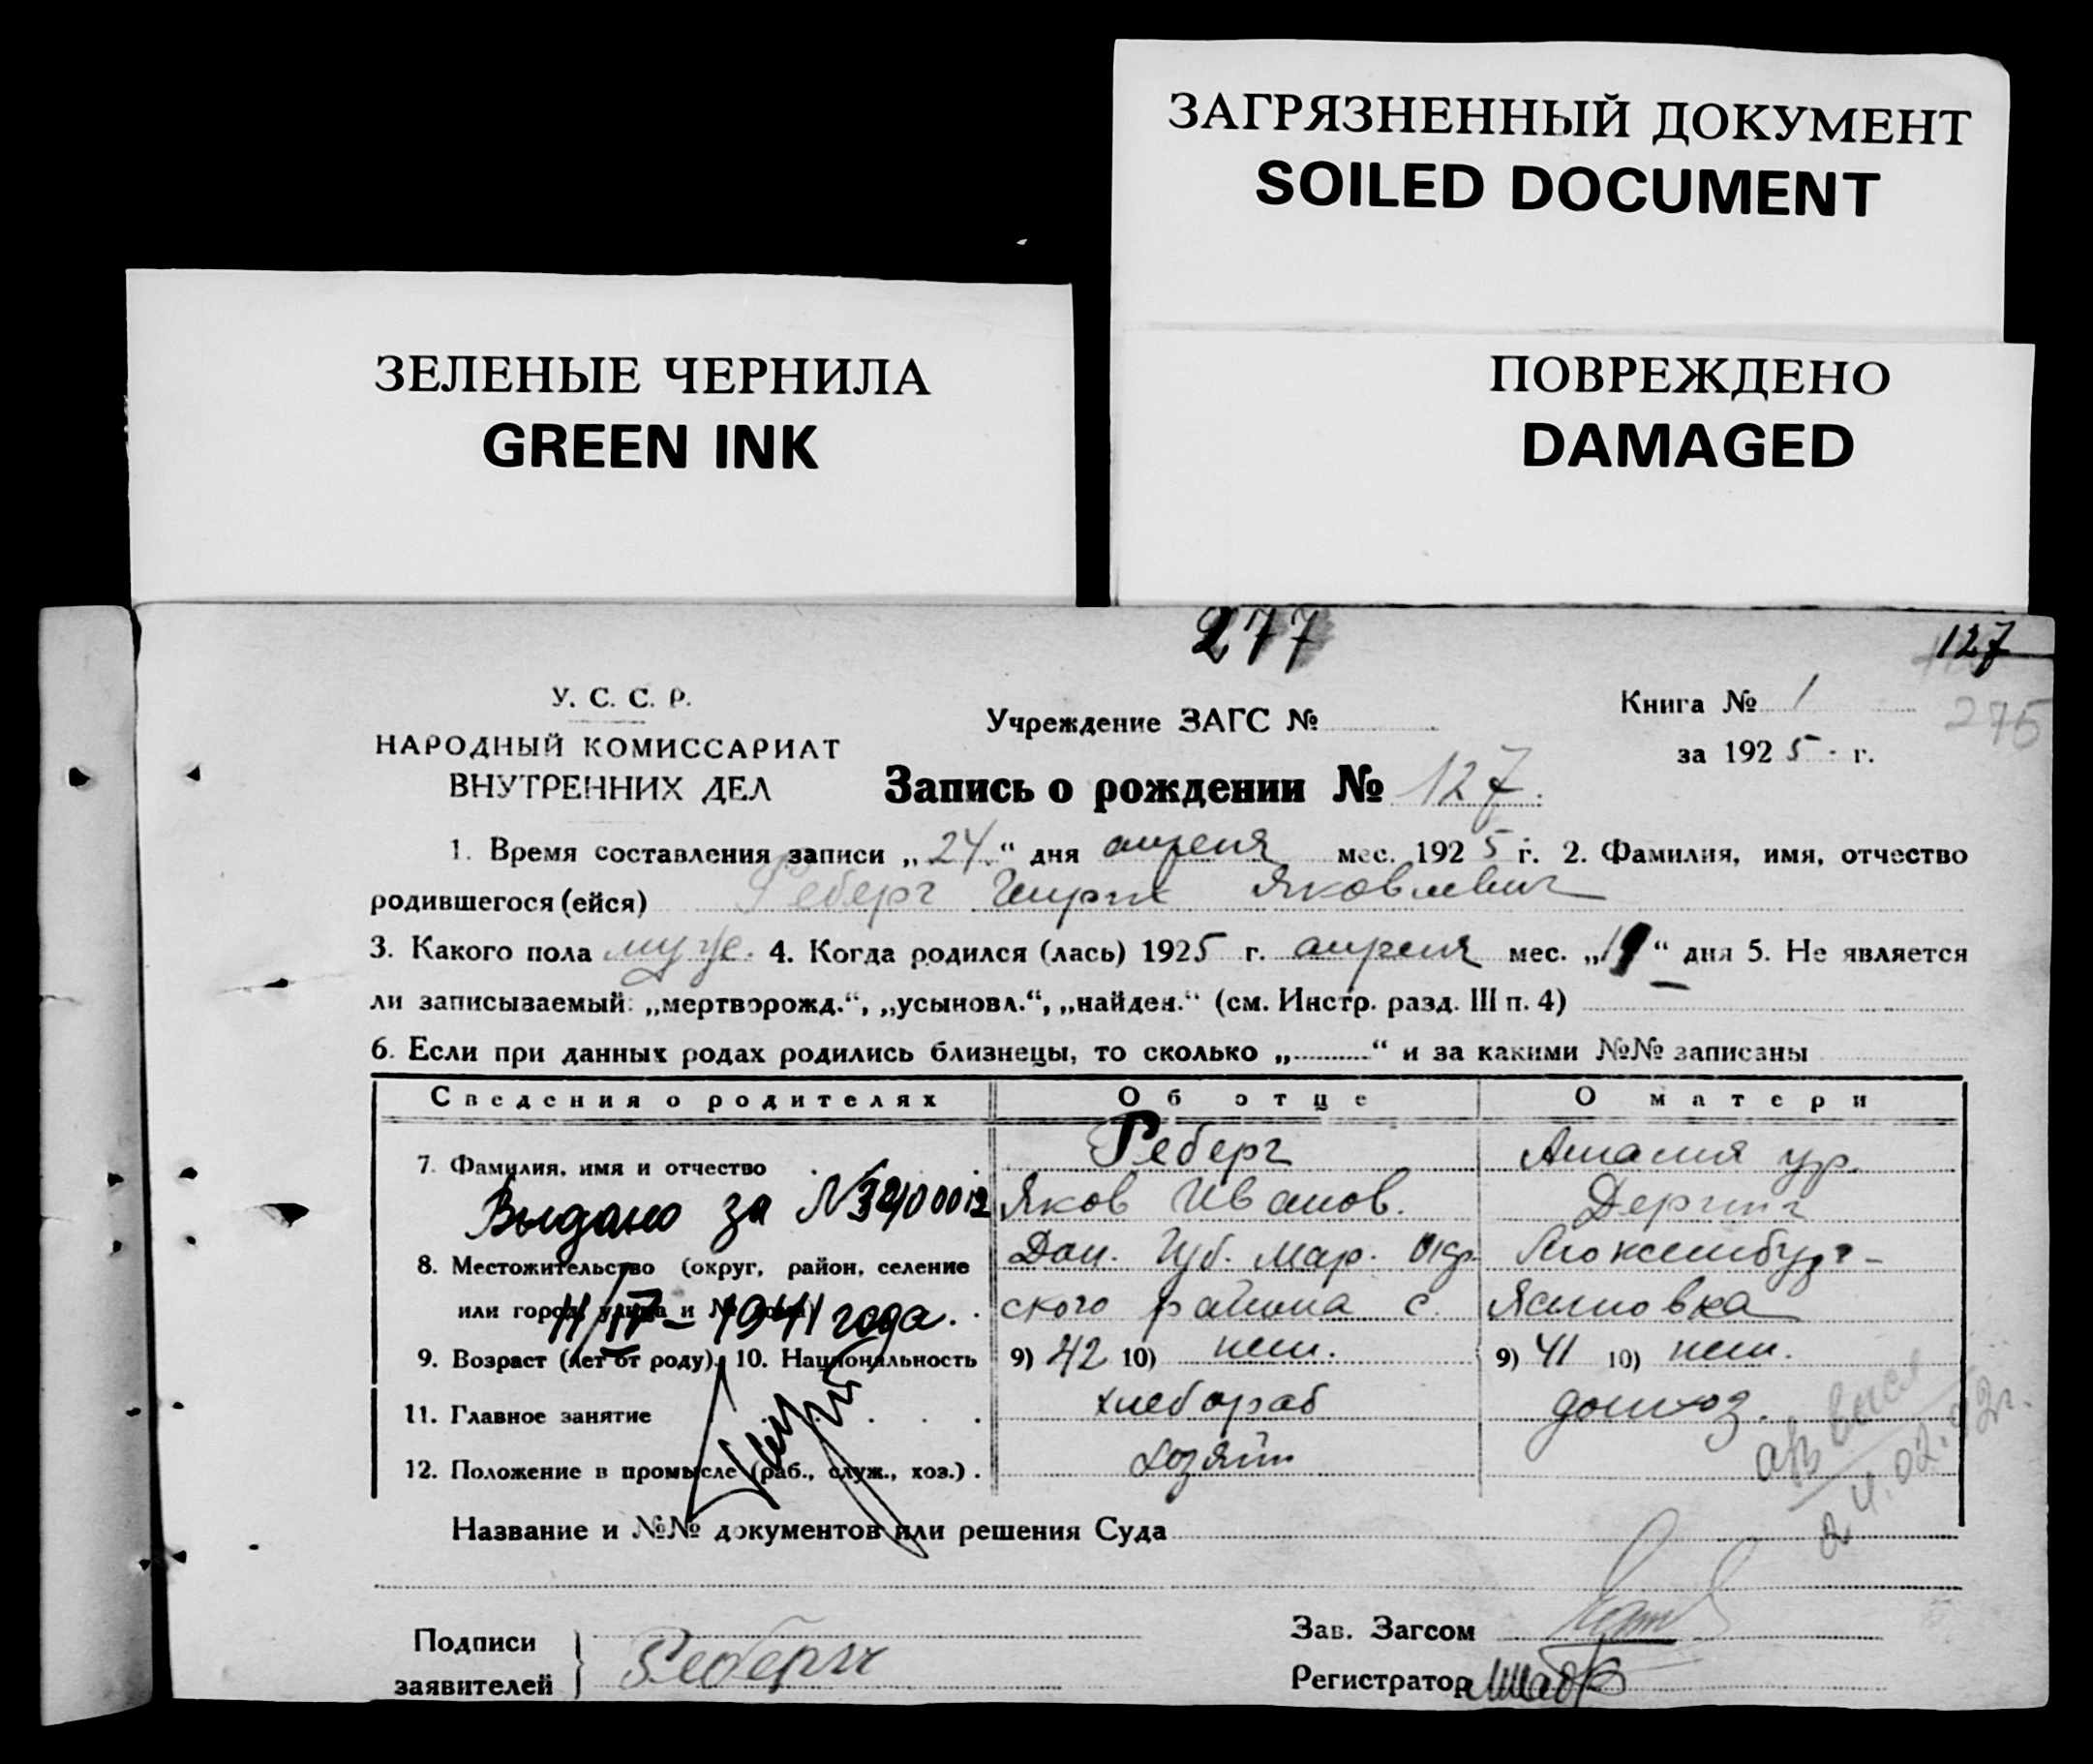 ЗАГРЯЗНЕННЫЙ ДОКУМЕНТ
SOILED DOCUMENT
ЗЕЛЕНЫЕ ЧЕРНИЛА
GREEN INK
ПОВРЕЖДЕНО
DAMAGED
277
127
275
У. С. С. Р.
НАРОДНЫЙ КОМИССАРИАТ
ВНУТРЕННИХ ДЕЛ
Учреждение ЗАГС №
Книга № 1
за 1925 г.
Запись о рождении № 127.
1. Время составления записи „24.“ дня апреля мес. 1925 г. 2. Фамилия, имя, отчество
родившегося (ейся) Реберг Гирих Яковлевич
3. Какого пола муж. 4. Когда родился (лась) 1925 г. апреля мес. „19“ дня 5. Не является
ли записываемый: „мертворожд.“, „усыновл.“, „найден.“ (см. Инстр. разд. III п. 4)
6. Если при данных родах родились близнецы, то сколько „..........“ и за какими №№ записаны
Сведения о родителях Об отце О матери
7. Фамилия, имя и отчество Реберг Амалия ур.
Выдано за № Яков Иванов. Дергинг
8. Местожительство (округ, район, селение Дон. Губ. Мар. Люксембург-
или город, улица и № дома) ского района с. Ясиновка
11/IV-1941 года.
9. Возраст (лет от роду). 10. Национальность 9) 42 10) нем. 9) 41 10) нем.
11. Главное занятие хлебораб домхоз.
12. Положение в промысле (раб., служ., хоз.) . хозяин
24.02.92г.
Название и №№ документов или решения Суда
Подписи
заявителей } Реберг
Зав. Загсом
Регистратор